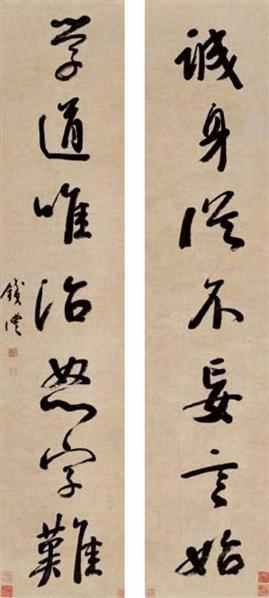 誠身從不妄言始
學道唯治怒字難
錢灃